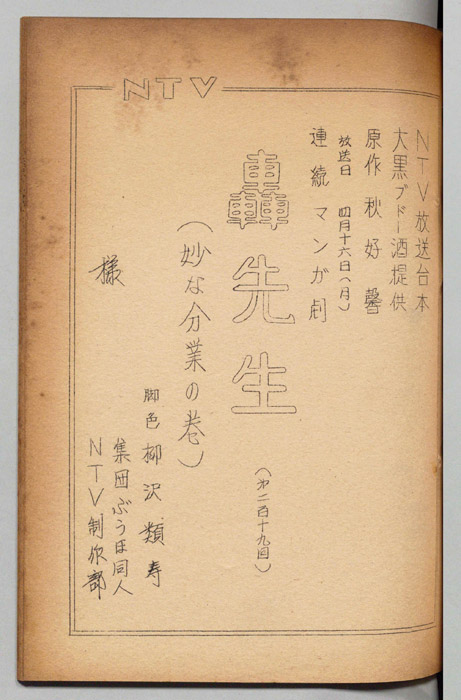 NTV
NTV放送台本
大黒ブドー酒提供
原作 秋好馨
放送日 四月十六日(月)
連続マンガ劇
轟先生
(第二百十九回)
(妙な分業の巻)
脚色 柳沢類寿
集団ぶうほ同人
NTV制作部
様